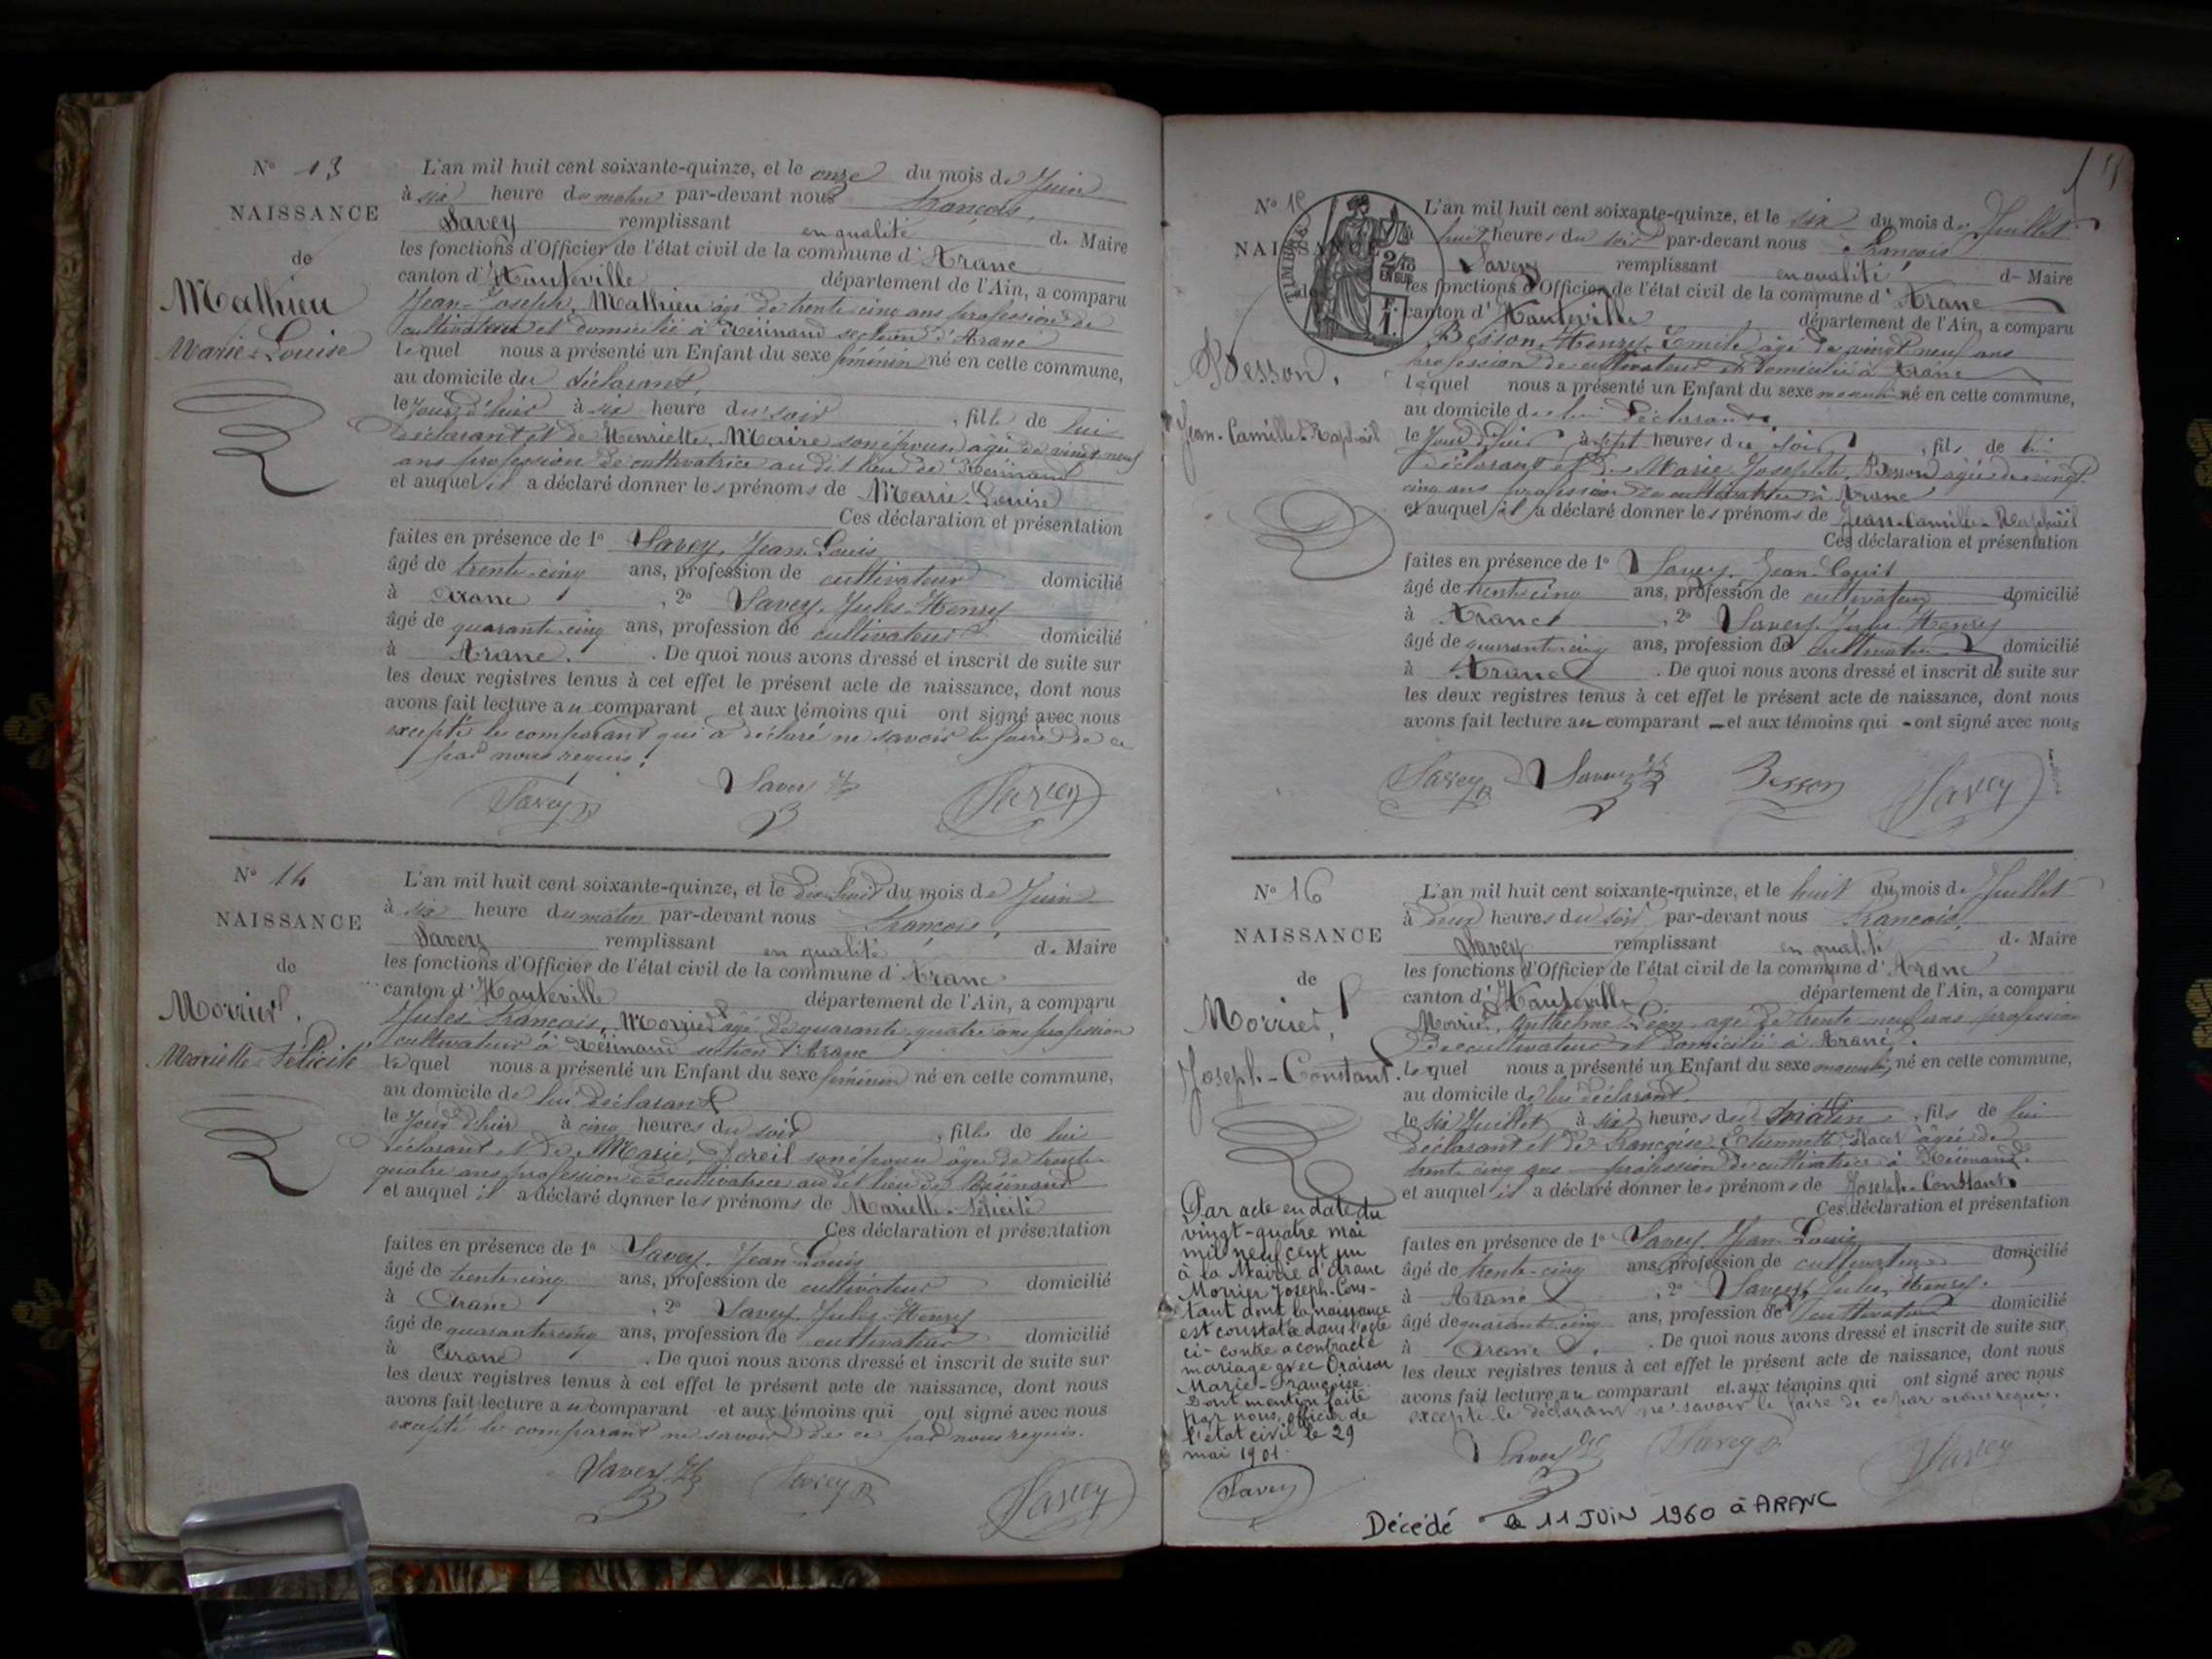 N° 13
NAISSANCE
de
Mathieu
Marie-Louise
L'an mil huit cent soixante-quinze, et le onze du mois de Juin
à six heure du matin par-devant nous François,
Savey remplissant en qualité de Maire
les fonctions d'Officier de l'état civil de la commune d'Aranc
canton d'Hauteville département de l'Ain, a comparu
Jean-Joseph, Mathieu âgé de trente cinq ans profession de
cultivateur et domicilié à Résinand section d'Aranc
lequel nous a présenté un Enfant du sexe féminin né en cette commune,
au domicile du déclarant
le jour d'hier à six heure du soir, fille de lui
déclarant et de Henriette, Maire son épouse âgée de vingt neuf
ans profession de cultivatrice au dit lieu de Résinand
et auquel il a déclaré donner les prénoms de Marie-Louise
Ces déclaration et présentation
faites en présence de 1° Savey, Jean Louis
âgé de trente-cinq ans, profession de cultivateur domicilié
à Aranc, 2° Savey, Jules-Henry
âgé de quarante-cinq ans, profession de cultivateur domicilié
à Aranc. De quoi nous avons dressé et inscrit de suite sur
les deux registres tenus à cet effet le présent acte de naissance, dont nous
avons fait lecture au comparant et aux témoins qui ont signé avec nous
excepté le comparant qui a déclaré ne savoir le faire de ce
par nous requis.
Savey Savey Savey
N° 14
NAISSANCE
de
Morrier.
Mariette-Félicité
L'an mil huit cent soixante-quinze, et le dix huit du mois de Juin
à six heure du matin par-devant nous François,
Savey remplissant en qualité de Maire
les fonctions d'Officier de l'état civil de la commune d'Aranc
canton d'Hauteville département de l'Ain, a comparu
Jules-François, Morrier âgé de quarante-quatre ans profession
cultivateur à Résinand section d'Aranc
lequel nous a présenté un Enfant du sexe féminin né en cette commune,
au domicile de lui déclarant
le jour d'hier à cinq heures du soir, fille de lui
déclarant et de Marie, Doreil son épouse âgée de trente-
quatre ans profession de cultivatrice au dit lieu de Résinand
et auquel il a déclaré donner les prénoms de Mariette-Félicité
Ces déclaration et présentation
faites en présence de 1° Savey, Jean Louis
âgé de trente-cinq ans, profession de cultivateur domicilié
à Aranc, 2° Savey, Jules-Henry
âgé de quarante-cinq ans, profession de cultivateur domicilié
à Aranc. De quoi nous avons dressé et inscrit de suite sur
les deux registres tenus à cet effet le présent acte de naissance, dont nous
avons fait lecture au comparant et aux témoins qui ont signé avec nous
excepté le comparant ne savoir de ce par nous requis.
Savey Savey Savey
N° 15
NAISSANCE
TIMBRE
2/10
EN SUS
de
Besson,
Jean-Camille-Raphaël
L'an mil huit cent soixante-quinze, et le six du mois de Juillet
à huit heures du soir par-devant nous François
Savey remplissant en qualité de Maire
les fonctions d'Officier de l'état civil de la commune d'Aranc
canton d'Hauteville département de l'Ain, a comparu
Besson, Henry-Emile âgé de vingt neuf ans
profession de cultivateur et domicilié à Aranc
lequel nous a présenté un Enfant du sexe masculin né en cette commune,
au domicile de lui déclarant
le jour d'hier à sept heures du soir, fils de lui
déclarant et de Marie Josephte, Besson âgée de vingt
cinq ans profession de cultivatrice à Aranc
et auquel il a déclaré donner les prénoms de Jean-Camille-Raphaël
Ces déclaration et présentation
faites en présence de 1° Savey, Jean-Louis
âgé de trente cinq ans, profession de cultivateur domicilié
à Aranc, 2° Savey, Jules Henry
âgé de quarante-cinq ans, profession de cultivateur domicilié
à Aranc. De quoi nous avons dressé et inscrit de suite sur
les deux registres tenus à cet effet le présent acte de naissance, dont nous
avons fait lecture au comparant et aux témoins qui ont signé avec nous
Savey Savey Besson Savey
N° 16
NAISSANCE
de
Morrier,
Joseph-Constant.
L'an mil huit cent soixante-quinze, et le huit du mois de Juillet
à deux heures du soir par-devant nous François,
Savey remplissant en qualité de Maire
les fonctions d'Officier de l'état civil de la commune d'Aranc
canton d'Hauteville département de l'Ain, a comparu
Morrier, Anthelme Léon, âgé de trente neuf ans profession
de cultivateur et domicilié à Aranc.
lequel nous a présenté un Enfant du sexe masculin, né en cette commune,
au domicile de lui déclarant.
le six Juillet à six heures du matin, fils de lui
déclarant et de Françoise, Etiennette, âgée de
trente cinq ans profession de cultivatrice à Résinand.
et auquel il a déclaré donner les prénoms de Joseph-Constant
Ces déclaration et présentation
faites en présence de 1° Savey, Jean-Louis
âgé de trente-cinq ans, profession de cultivateur domicilié
à Aranc, 2° Savey, Jules, Henry.
âgé de quarante-cinq ans, profession de cultivateur domicilié
à Aranc. De quoi nous avons dressé et inscrit de suite sur
les deux registres tenus à cet effet le présent acte de naissance, dont nous
avons fait lecture au comparant et aux témoins qui ont signé avec nous
excepté le déclarant ne savoir le faire de ce par nous requis.
Savey Savey Savey
Par acte en date du
vingt-quatre mai
mil neuf cent un
à la Mairie d'Aranc
Morrier Joseph-Cons-
tant dont la naissance
est constatée dans l'acte
ci-contre a contracté
mariage avec Oraison
Marie-Françoise.
Dont mention faite
par nous, officier de
l'état civil le 29
mai 1901.
Savey
Décédé le 11 JUIN 1960 à ARANC